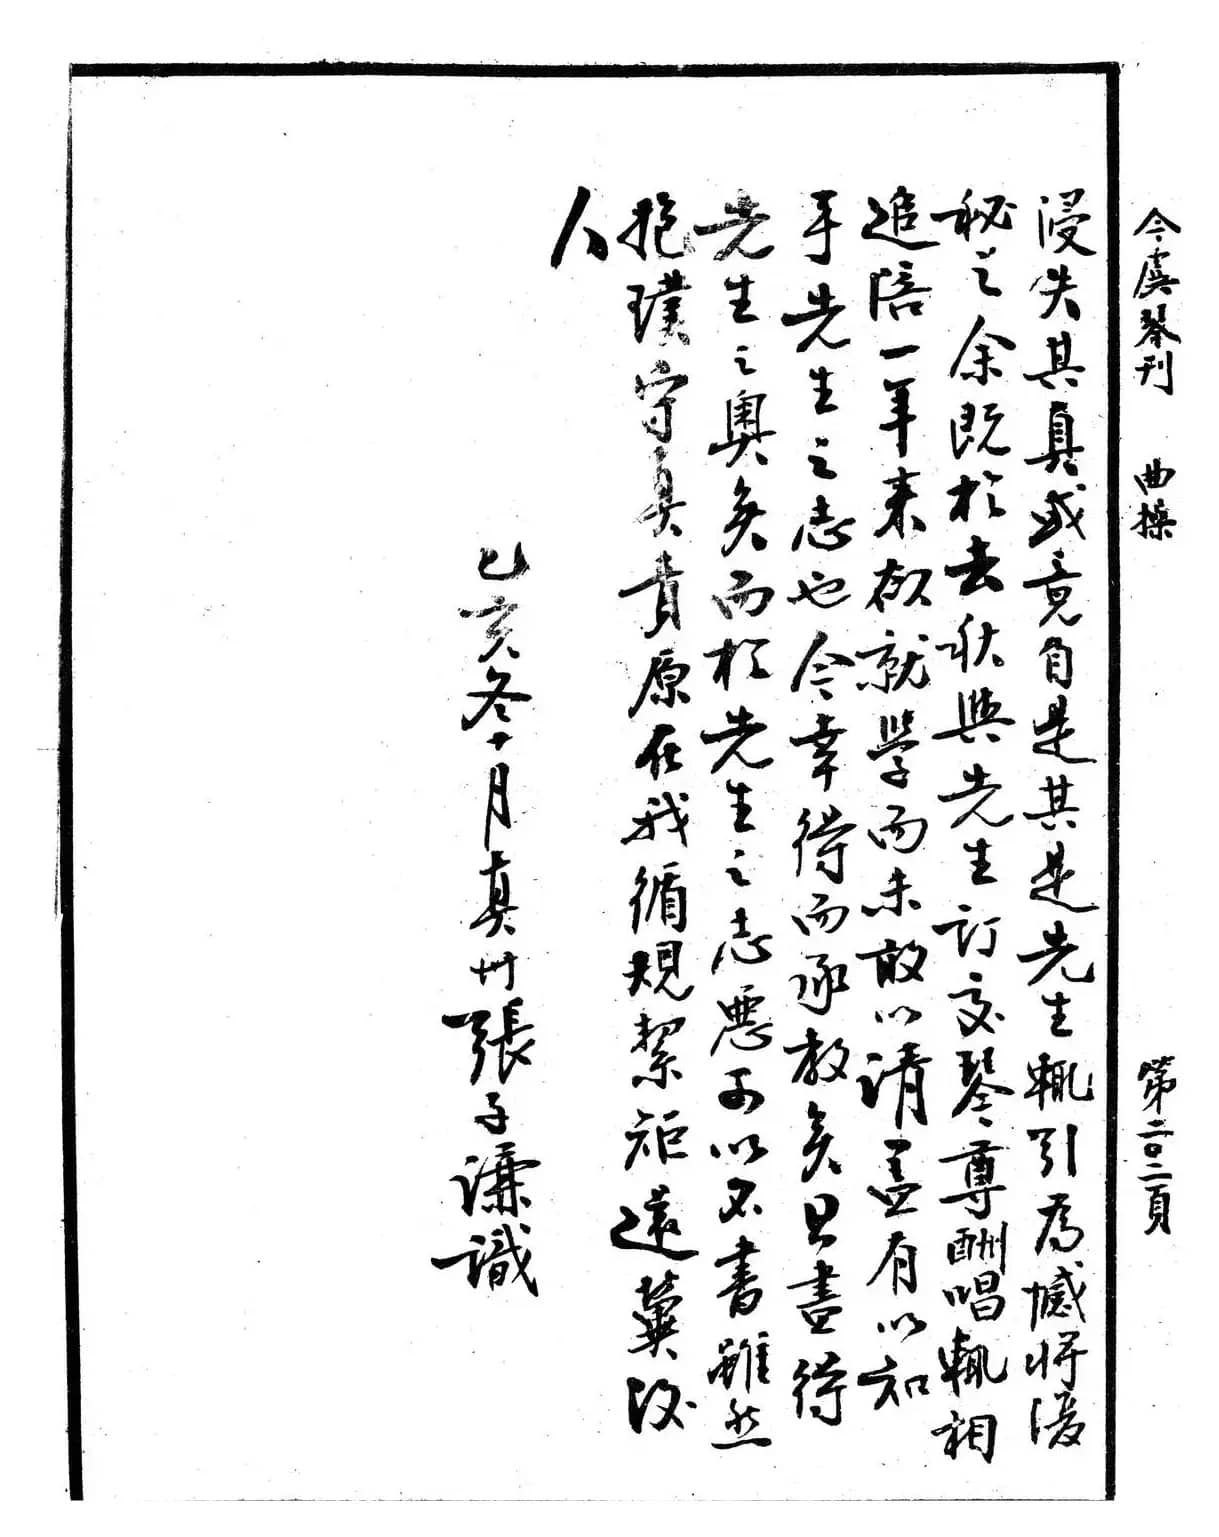 今虞琴刊 曲操 第二〇二頁
浸失其真或竟自是其是先生輒引為憾將湲
秘之余既於去秋與先生訂交琴尊酬唱輒相
追陪一年來欲就學而未敢以請蓋有以知
乎先生之志也今幸得而承教矣且盡得
先生之奧矣而於先生之志惡可以不書雖然
抱璞守真責原在我循規絜矩遠冀後
人
乙亥冬十月真州張子謙識